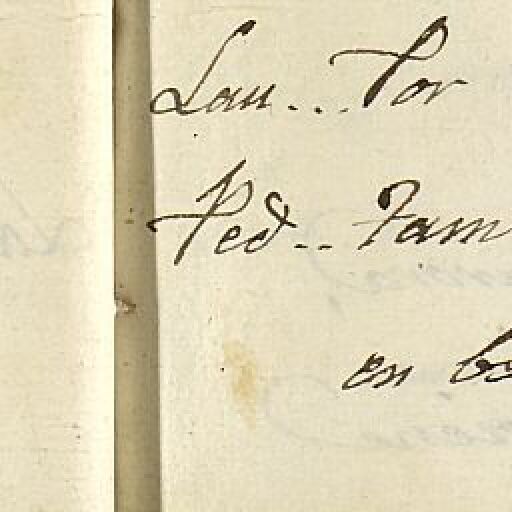 Lau... Por
Ped.. Fam
en bo